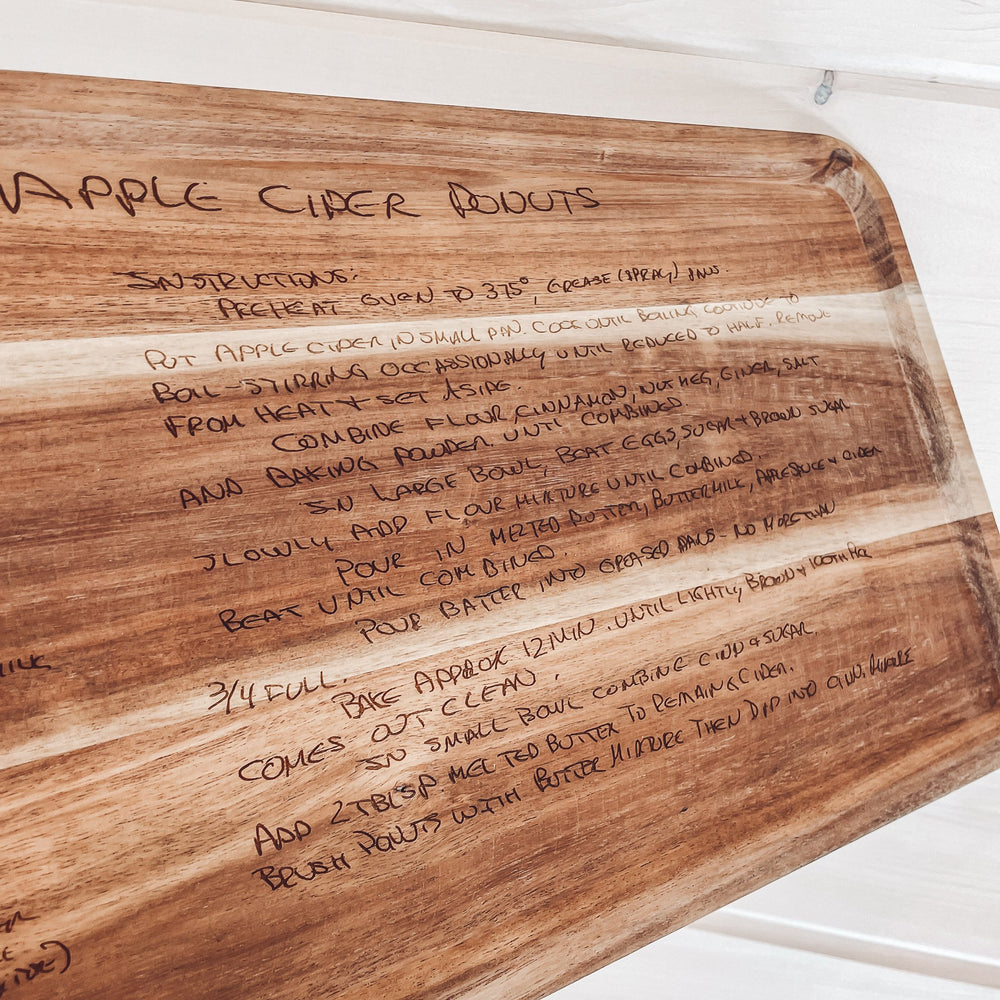 APPLE CIDER DONUTS
INSTRUCTIONS:
PREHEAT OVEN TO 375°, GREASE (SPRAY) PANS.
PUT APPLE CIDER IN SMALL PAN. COOK UNTIL BOILING CONTINUE TO
BOIL - STIRRING OCCASSIONALLY UNTIL REDUCED TO HALF. REMOVE
FROM HEAT & SET ASIDE.
COMBINE FLOUR, CINNAMON, NUTMEG, GINGER, SALT
AND BAKING POWDER. UNTIL COMBINED.
IN LARGE BOWL, BEAT EGGS, SUGAR & BROWN SUGAR
SLOWLY ADD FLOUR MIXTURE UNTIL COMBINED.
POUR IN MELTED BUTTER, BUTTERMILK, APPLESAUCE & CIDER
BEAT UNTIL COMBINED.
POUR BATTER INTO GREASED PANS - NO MORE THAN
3/4 FULL.
BAKE APPROX 12 MIN. UNTIL LIGHTLY BROWN & TOOTH PICK
COMES OUT CLEAN.
IN SMALL BOWL COMBINE CINN & SUGAR.
ADD 2 TBLSP MELTED BUTTER TO REMAING CIDER.
BRUSH DONUTS WITH BUTTER MIXTURE THEN DIP INTO CINN. MIXTURE